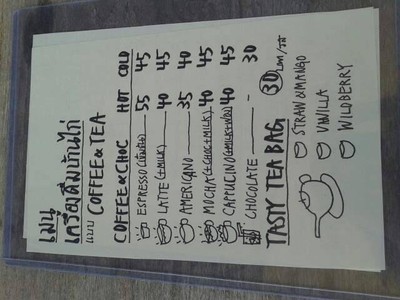 เมนู
เครื่องดื่มบ้านไก่
แบบ COFFEE & TEA
COFFEE & CHOC HOT COLD
ESPRESSO 55 45
LATTE (+MILK) 40 45
AMERICANO 35 40
MOCHA (+CHOC+MILK) 40 45
CAPPUCINO (+MILK+ฟอง) 40 45
CHOCOLATE - 30
TASTY TEA BAG 30
STRAW & MANGO
VANILLA
WILDBERRY